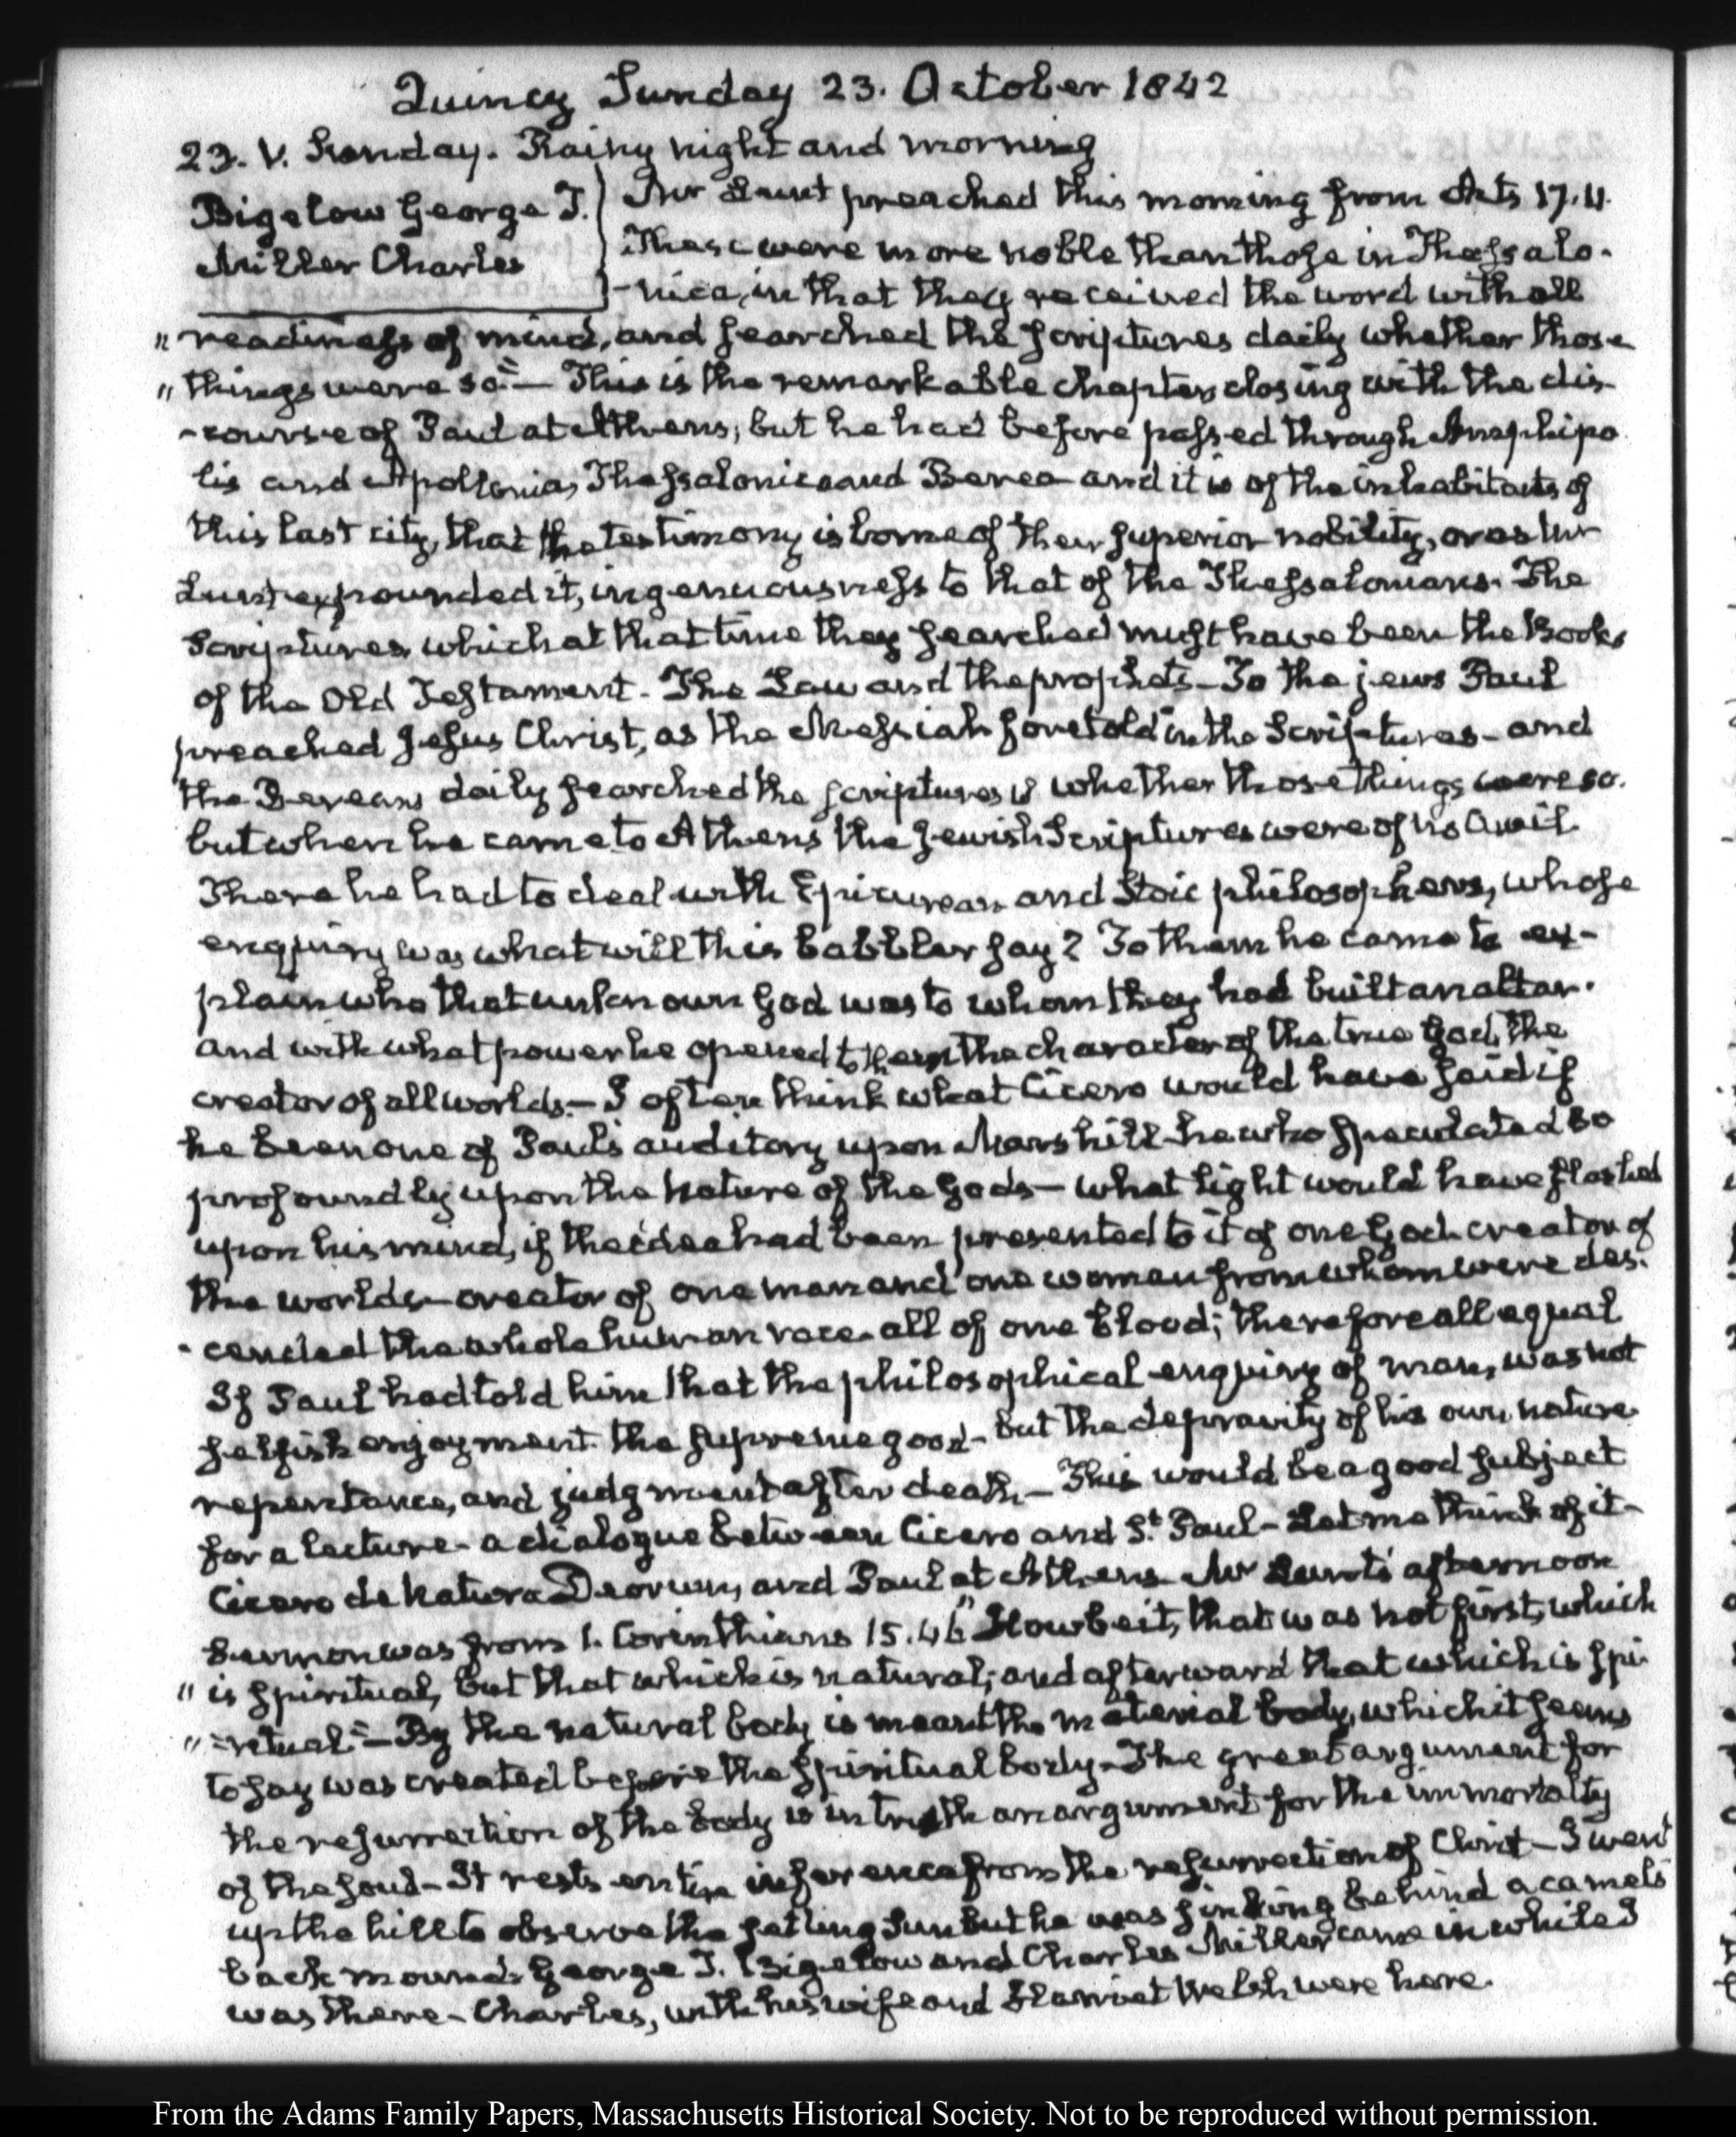 Quincy Sunday 23. October 1842
23. V. Sunday. Rainy night and morning
Bigelow George T.
Miller Charles
Mr Lunt preached this morning from Acts 17.11.
These were more noble than those in Thessalo-
-nica, in that they received the word with all
" readiness of mind, and searched the scriptures daily whether those
" things were so"— This is the remarkable chapter closing with the dis-
-course of Paul at Athens; but he had before passed through Amphipo
lis and Apollonia, Thessalonica and Berea and it is of the inhabitants of
this last city, that the testimony is borne of their superior nobility, or as Mr
Lunt expounded it, ingenuousness to that of the Thessalonians. The
Scriptures which at that time they searched must have been the Books
of the Old Testament. The Law and the prophets— To the jews Paul
preached Jesus Christ, as the Messiah foretold in the Scriptures— and
the Bereans daily searched the scriptures whether those things were so.
but when he came to Athens the Jewish Scriptures were of no avail.
There he had to deal with Epicurean and Stoic philosophers, whose
enquiry was what will this babbler say? To them he came to ex-
plain who that unknown God was to whom they had built an altar.
and with what power he opened to them the character of the true God, the
creator of all worlds.— I often think what Cicero would have said if
he been one of Paul's auditory upon Mars hill— he who speculated so
profoundly upon the Nature of the Gods— what light would have flashed
upon his mind, if the idea had been presented to it of one God, creator of
the worlds— creator of one man and one woman from whom were des-
-cended the whole human race— all of one blood; therefore all equal
If Paul had told him that the philosophical enquiry of man, was not
selfish enjoyment the supreme good— but the depravity of his own nature
repentance, and judgment after death.— This would be a good subject
for a lecture— a dialogue between Cicero and St. Paul— Let me think of it—
Cicero de Natura Deorum, and Paul at Athens— Mr Lunt's afternoon
Sermon was from 1. Corinthians 15.46 "Howbeit, that was not first, which
" is spiritual, but that which is natural; and afterward that which is spi-
" =ritual"— By the natural body is meant the material body, which it seems
to say was created before the spiritual body— The great argument for
the resurrection of the body is in truth an argument for the immortality
of the soul— It rests entire inference from the resurrection of Christ— I went
up the hill to observe the setting Sun but he was sinking behind a camels
back mound. George T. Bigelow and Charles Miller came in while I
was there— Charles, with his wife and Harriet Welsh were here.
From the Adams Family Papers, Massachusetts Historical Society. Not to be reproduced without permission.